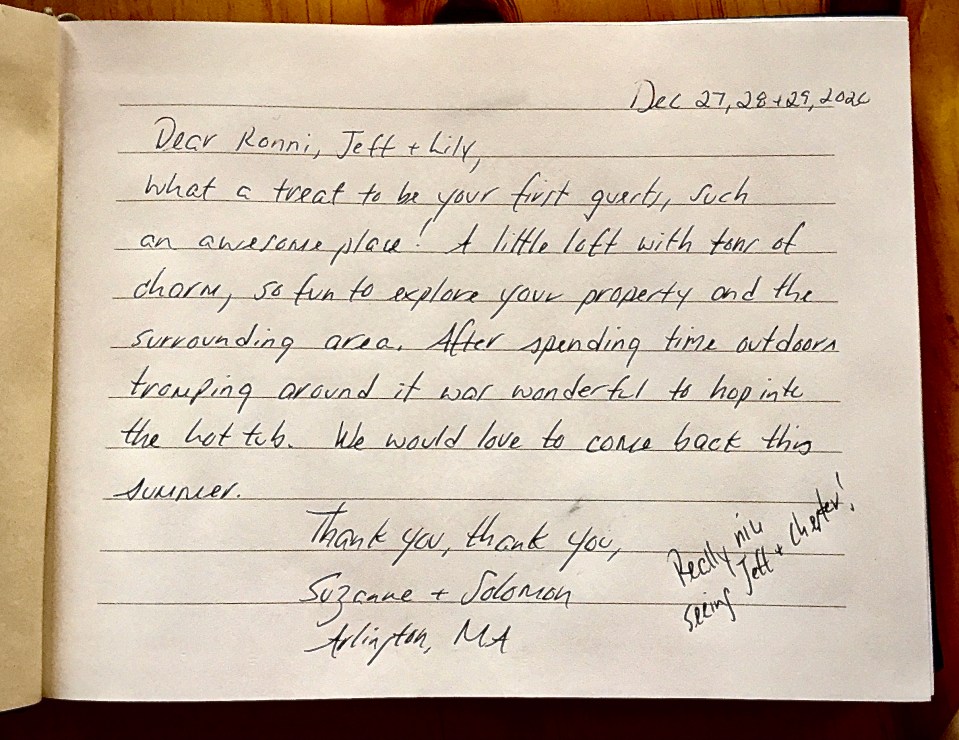 Dec 27, 28 + 29, 2020
Dear Ronni, Jeff + Lily,
What a treat to be your first guests, such
an awesome place! A little loft with tons of
charm, so fun to explore your property and the
surrounding area. After spending time outdoors
tromping around it was wonderful to hop into
the hot tub. We would love to come back this
summer.
Thank you, thank you,
Suzanne + Solomon
Arlington, MA
Really nice
seeing Jeff + Chester!